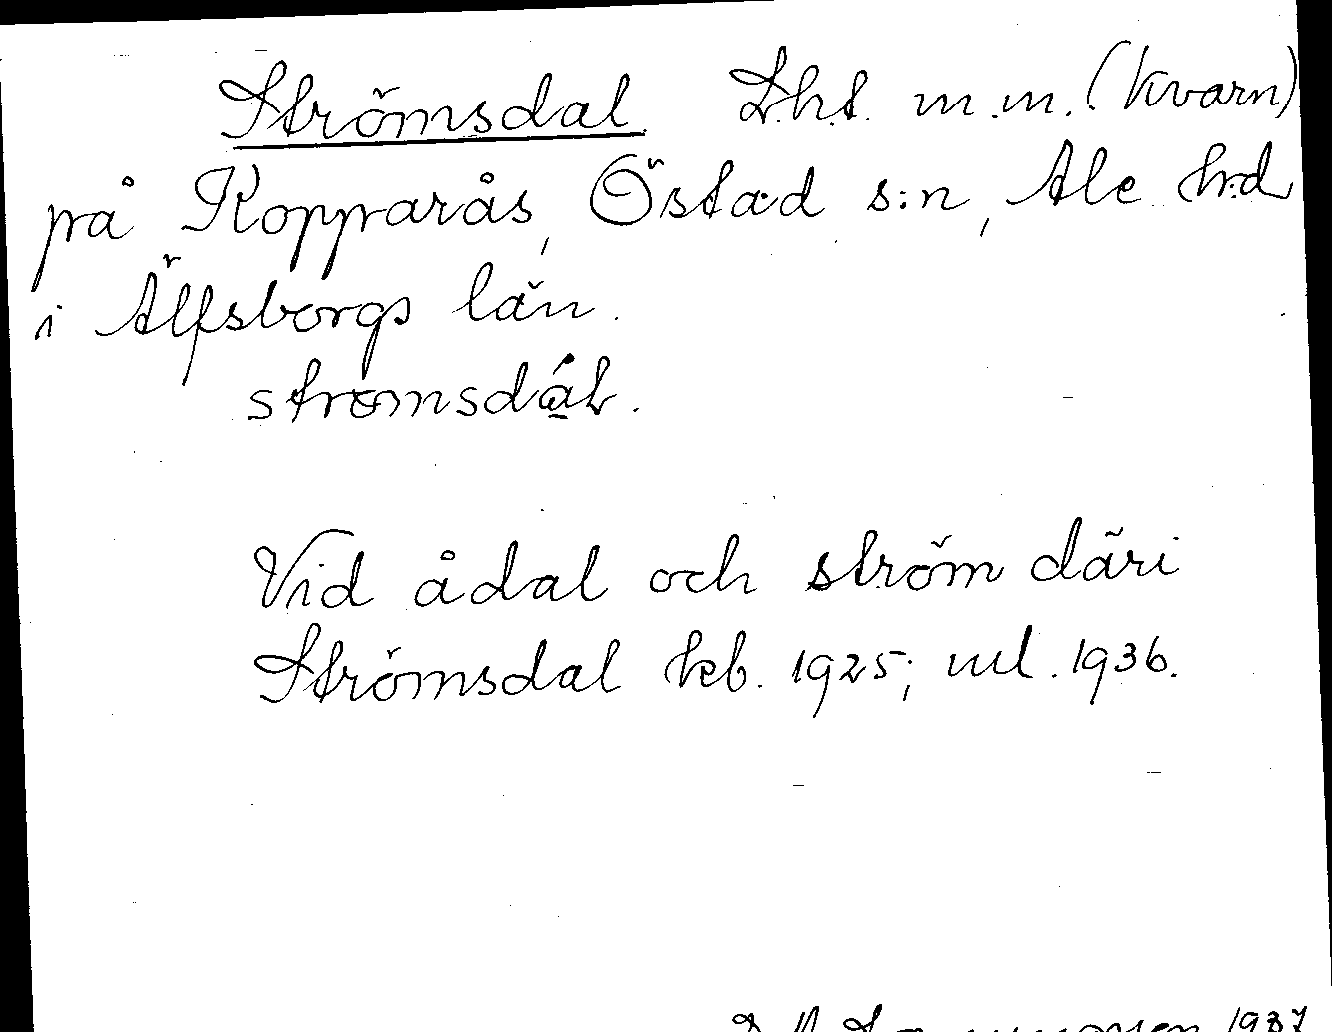 Strömsdal Lht m.m. (kvarn)
på Kopparås, Östad s:n, Ale hd
i Älfsborgs län.
strömsdál.
Vid ådal och ström däri
Strömsdal hkb. 1925; uul. 1936.
1937